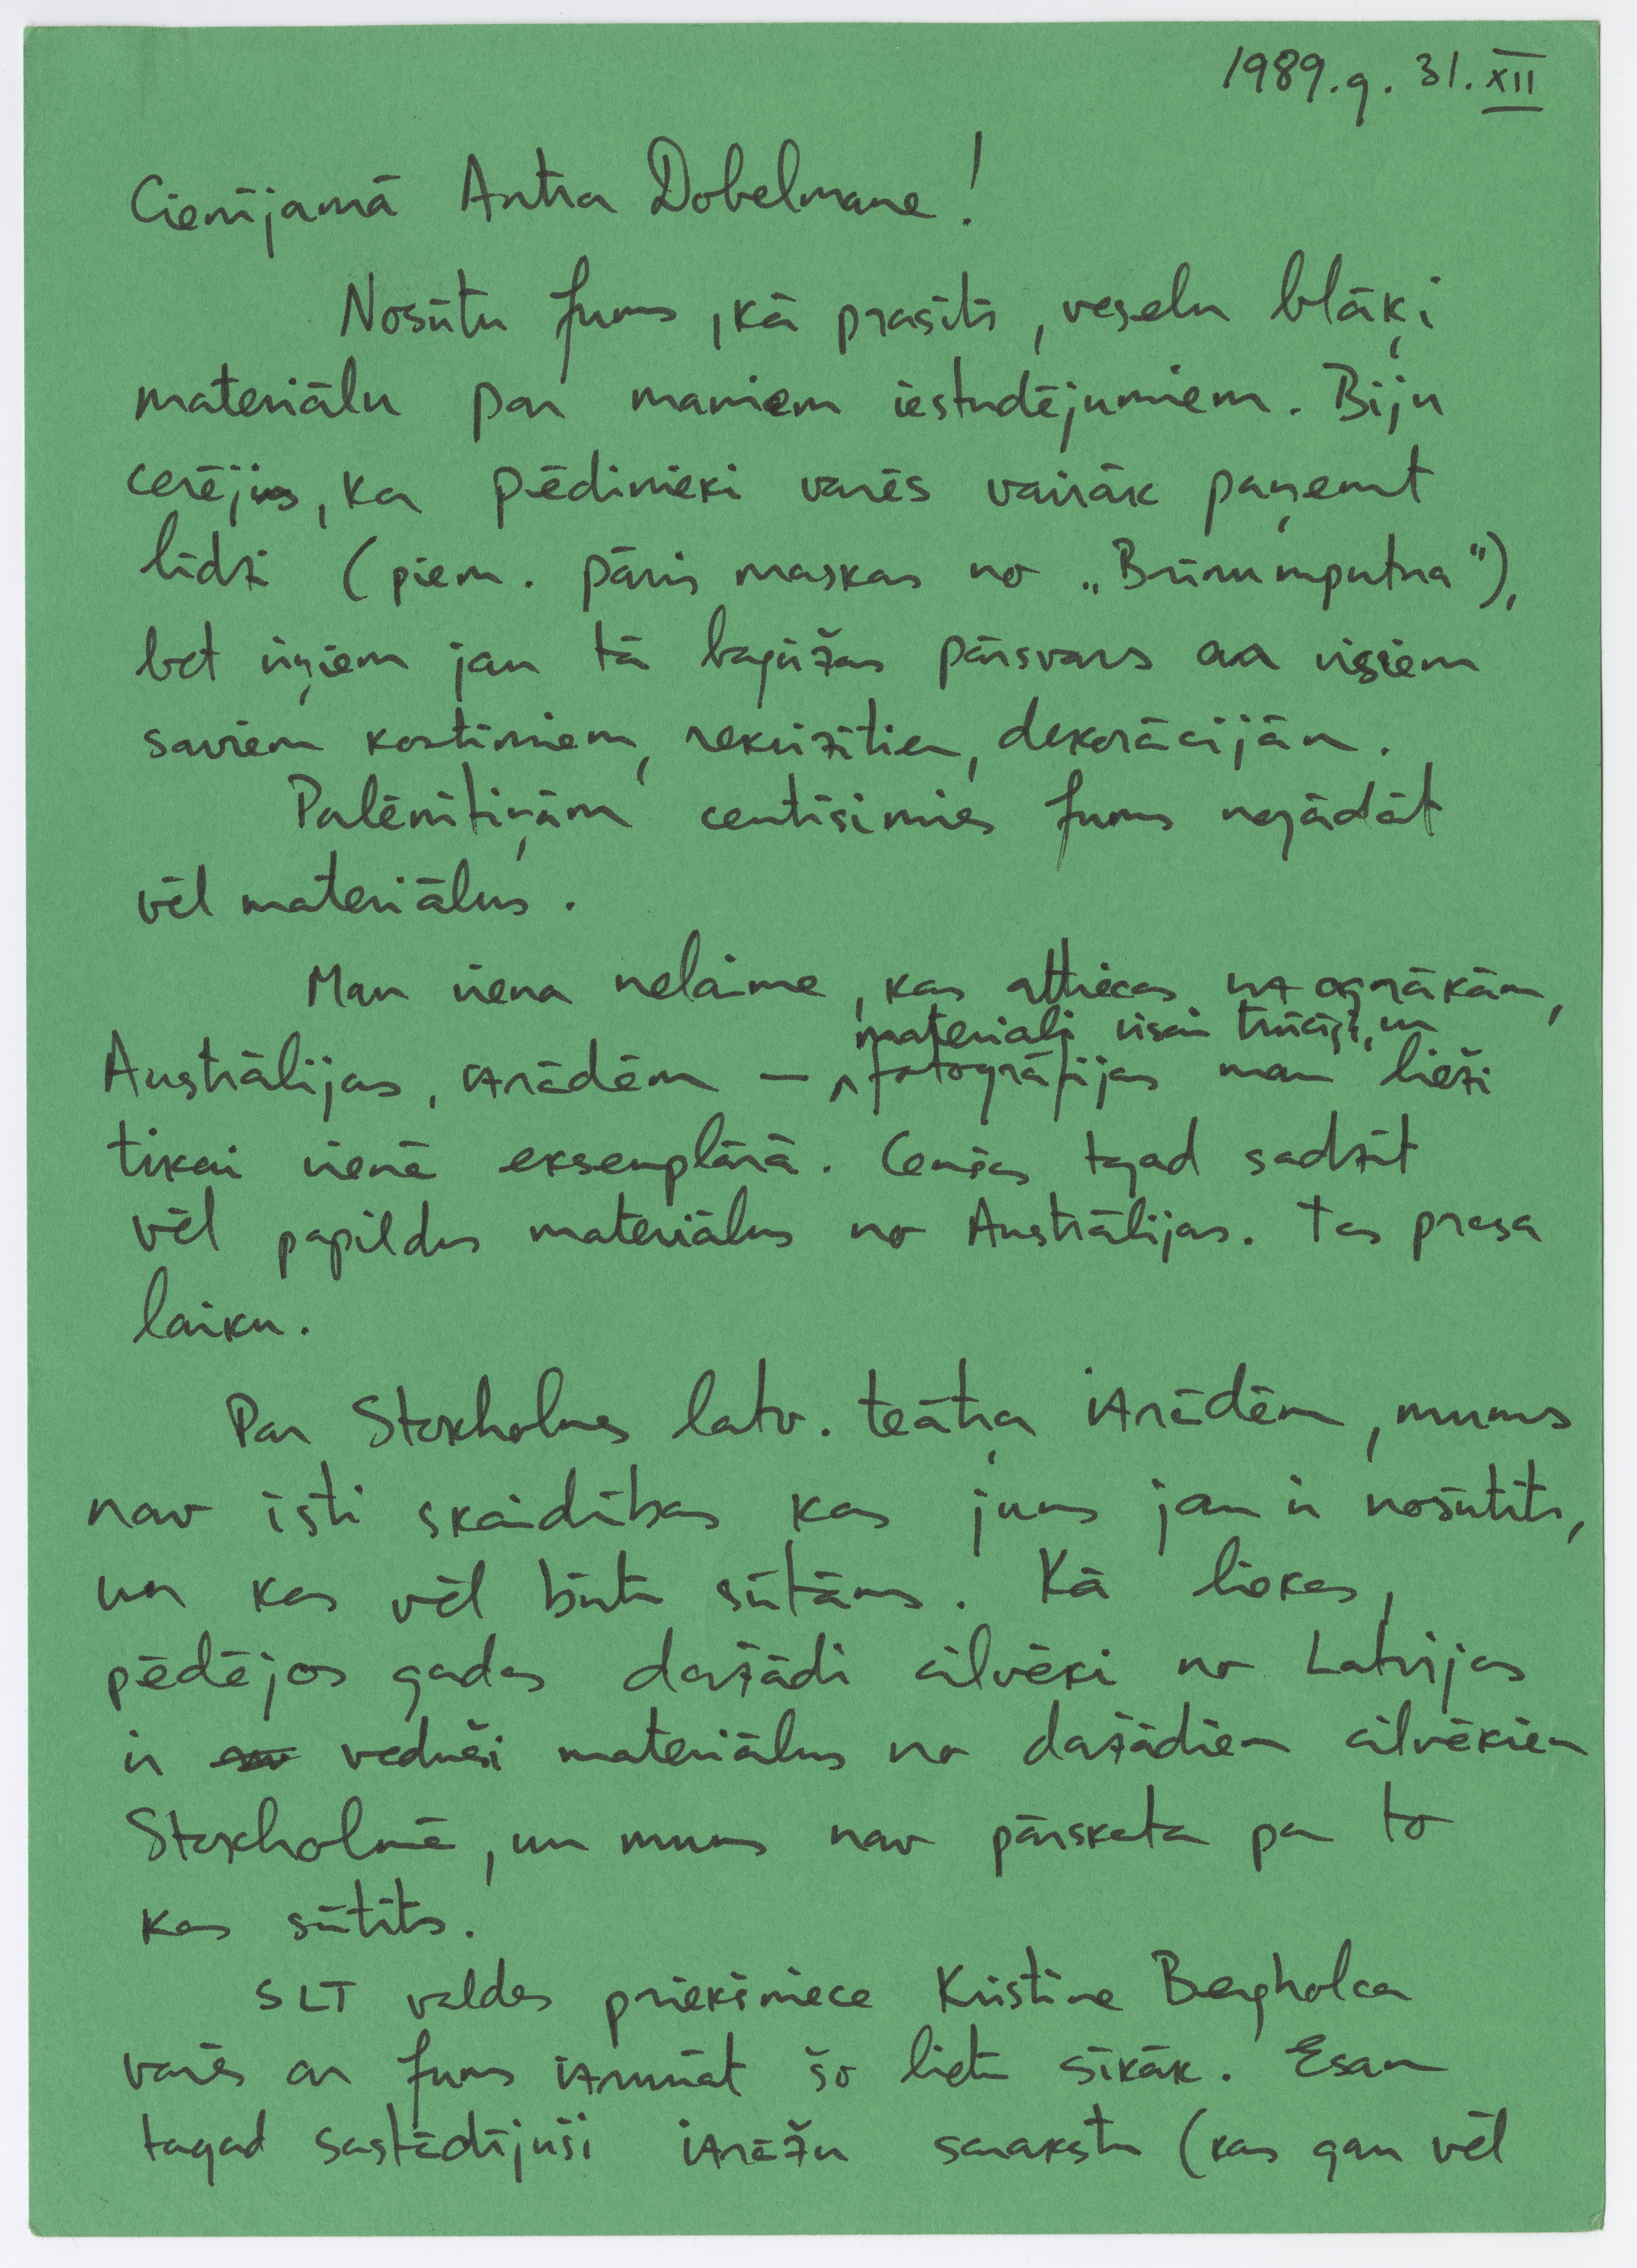 1989.g. 31.XII
Cienījamā Antra Dobelmane!
Nosūtu Jums, kā prasīts, veselu blāķi
materiālu par maniem iestudējumiem. Biju
cerējis, ka pēdinieki varēs vairāk paņemt
līdzi (piem. pāris maskas no „Brīnumputna"),
bet viņiem jau tā bagāžas pārsvars ar visiem
saviem kostīmiem, rekvizītiem, dekorācijām.
Palēnītiņām centīsimies Jums nogādāt
vēl materiālus.
Man viena nelaime, kas attiecas uz agrākām,
Austrālijas, izrādēm — materiali visai trūcīgi, un fotogrāfijas man bieži
tikai vienā eksemplārā. Cenšos tagad sadzīt
vēl papildus materiālus no Austrālijas. Tas prasa
laiku.
Par Stokholmas latv. teātŗa izrādēm, mums
nav īsti skaidrības kas jums jau ir nosūtīts,
un kas vēl būtu sūtāms. Kā liekas,
pēdējos gados dažādi cilvēki no Latvijas
ir veduši materiālus no dažādiem cilvēkiem
Stokholmā, un mums nav pārskata par to
kas sūtīts.
SLT valdes priekšniece Kristine Bergholca
varēs ar Jums izrunāt šo lietu sīkāk. Esam
tagad sastādījuši izrāžu sarakstu (kas gan vēl